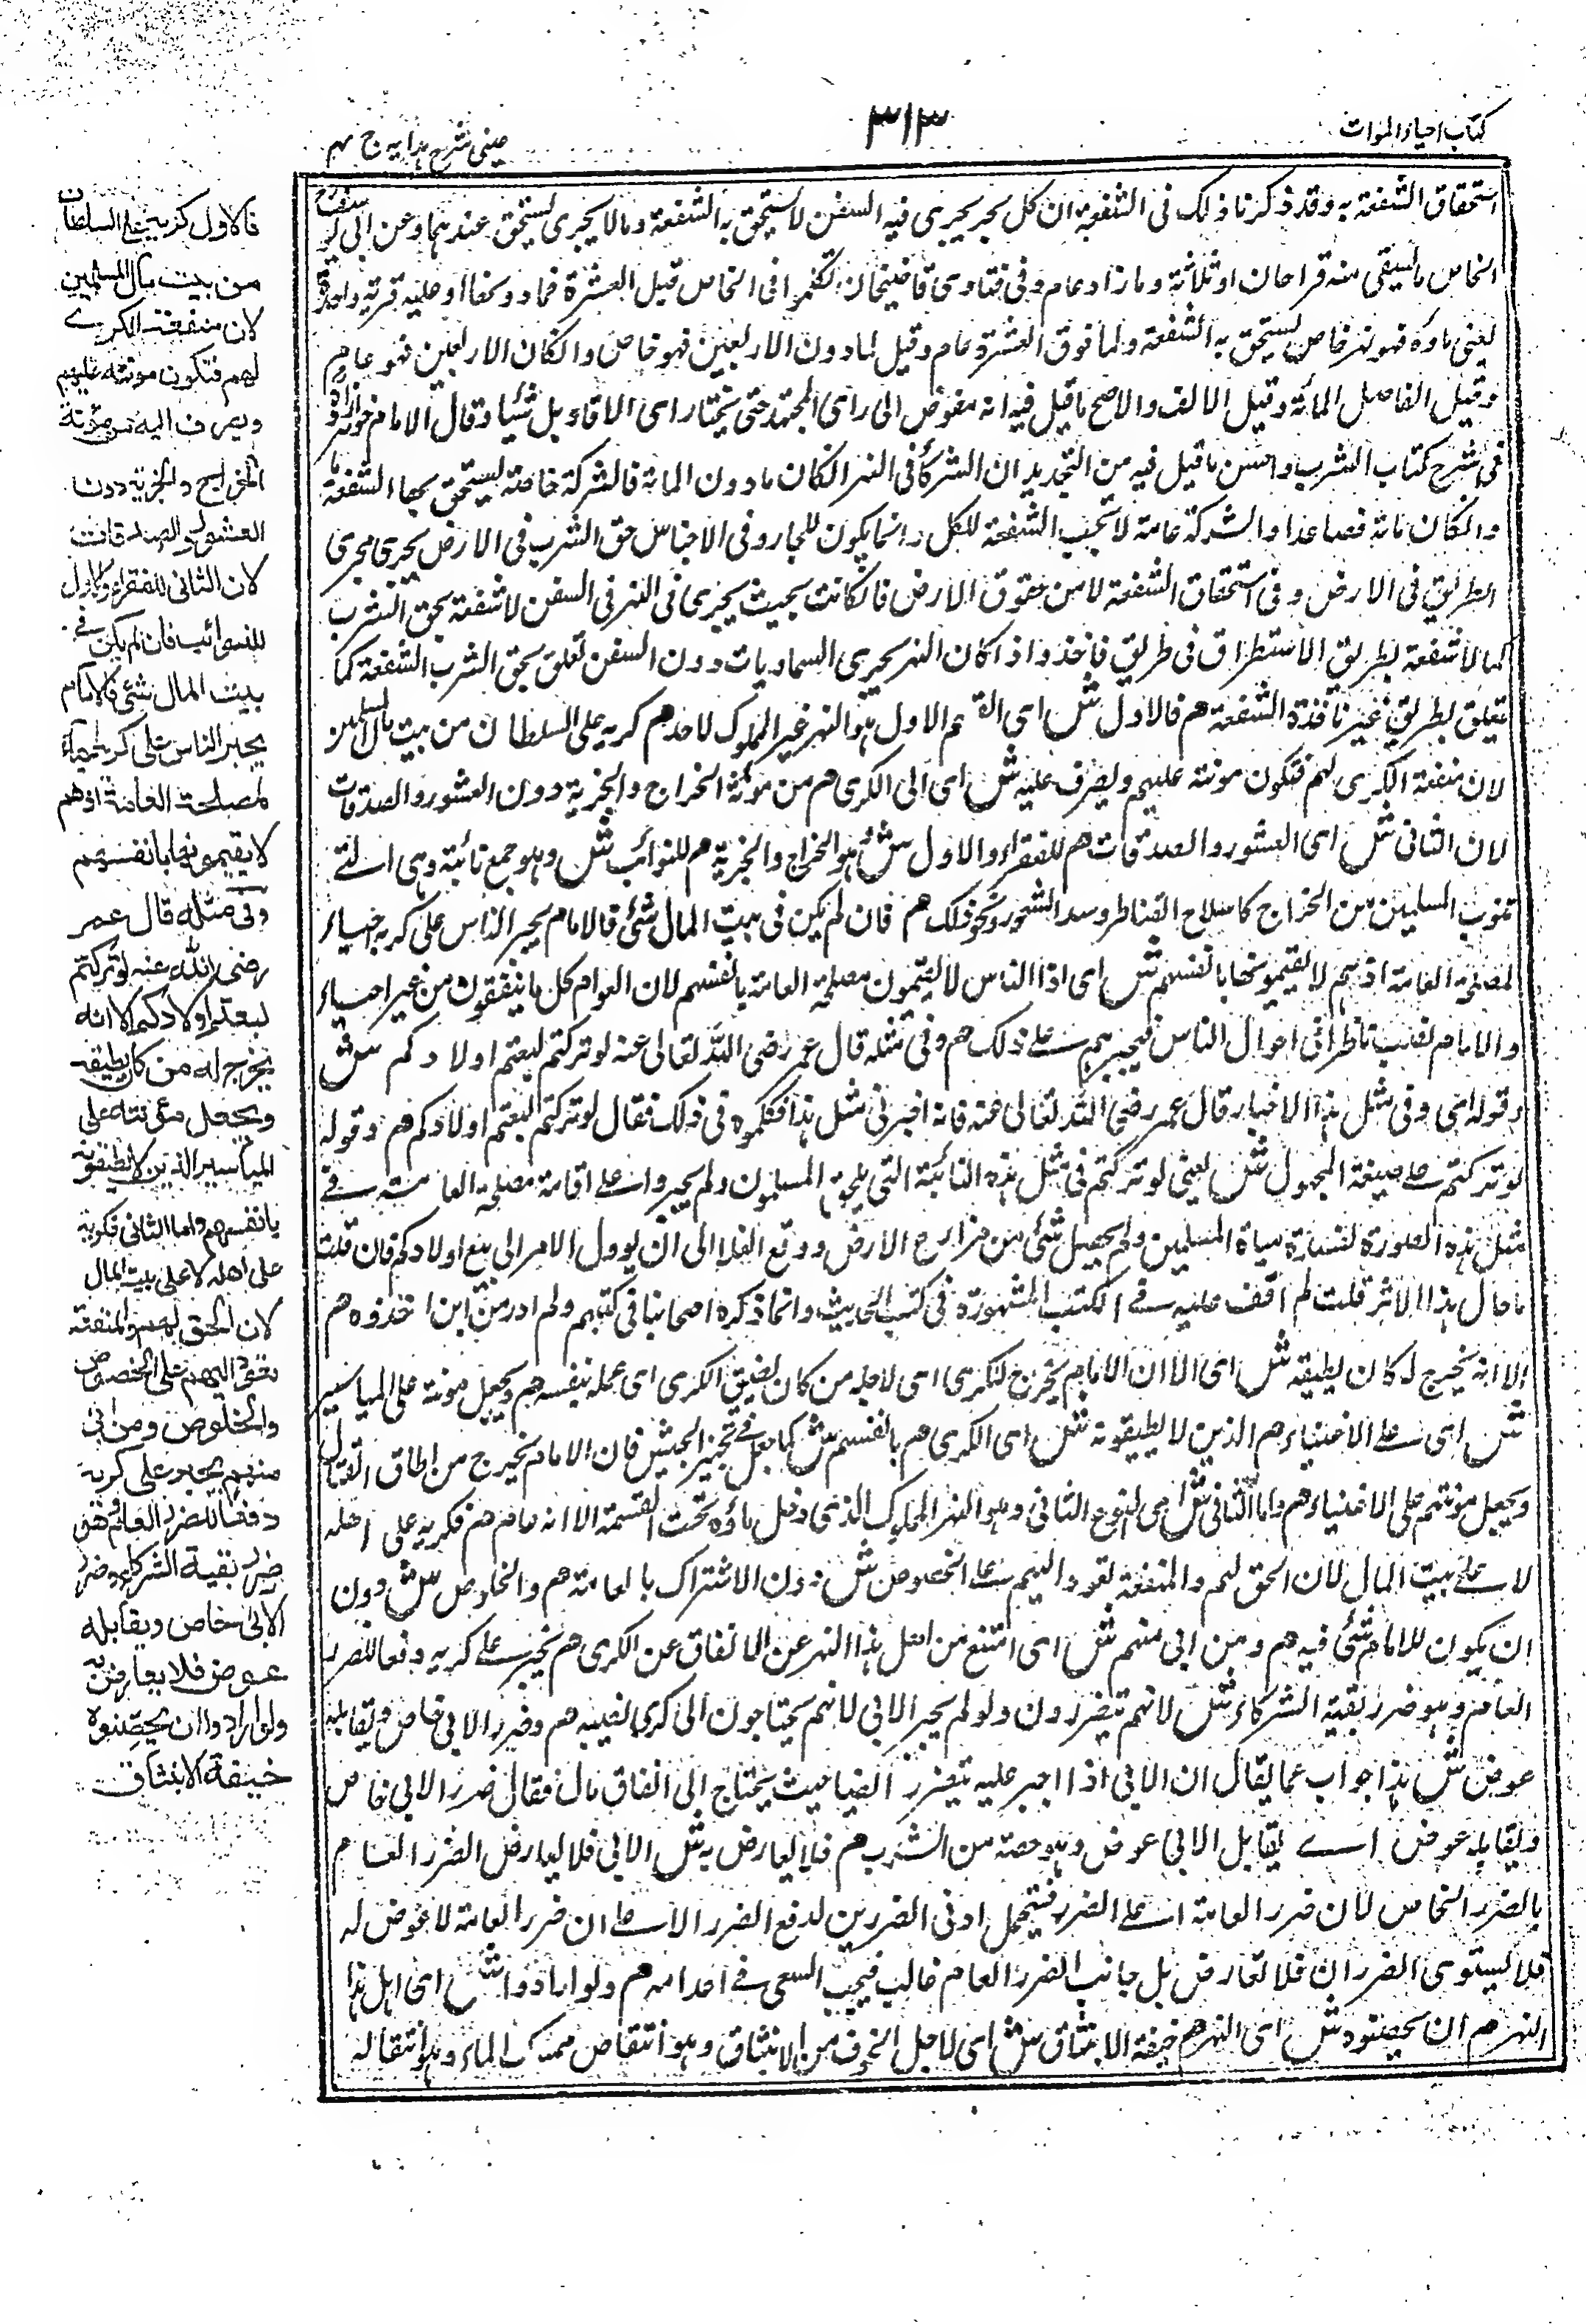 كتاب احياء الموات
٣١٣
عينى شرح هدايه ج ٤
استحقاق الشفعة به وقد ذكرنا ذلك فى الشفعة ان كل نهر يجرى فيه السفن لا يستحق به الشفعة وما لا يجرى يستحق عندهما وعن ابى يوسف
الخاص ما يسقى منه قراحان او ثلاثة وما زاد عام وفى فتاوى قاضيخان تكلموا فى الخاص قيل العشرة فما دونها او عليه قرية واحدة
يعنى ماؤه فهو نهر خاص يستحق به الشفعة ولما فوق العشرة عام وقيل لما دون الاربعين فهو خاص وان كان الاربعين فهو عام
وقيل الفاصل المائة وقيل الالف والاصح ما قيل فيه انه مفوض الى راى المجتهد حتى يختار اى الاقاويل شيئا وقال الامام خواهرزاده
فى شرح كتاب الشرب واحسن ما قيل فيه من التحديد ان الشركاء فى النهر ان كان ما دون المائة فالشركة خاصة يستحق بها الشفعة
وان كان مائة فصاعدا والشركة عامة لا تجب الشفعة للكل وانما يكون للجار وفى الاجناس حق الشرب فى الارض يجرى مجرى
الطريق فى الارض وفى استحقاق الشفعة لا من حقوق الارض فان كانت بحيث يجرى فى النهر فى السفن لا شفعة بحق الشرب
كما لا شفعة بطريق الاستطراق فى طريق نافذ واذا كان النهر يجرى السماديات دون السفن تعلق بحق الشرب الشفعة كما
تعلق بطريق غير نافذة الشفعة هم فالاول ش اى القسم الاول وهو النهر غير المملوك لاحد هم كريه على السلطان من بيت مال المسلمين
لان منفعة الكرى لهم فتكون مونته عليهم ويصرف عليه ش اى الى الكرى هم من مونة الخراج والجزية دون العشور والصدقات
لان الثانى ش اى العشور والصدقات هم للفقراء والاول ش وهو الخراج والجزية هم للنوائب ش وهو جمع نائبة وهى التى
تنوب المسلمين من الخراج كاصلاح القناطر وسد الثغور ونحو ذلك هم فان لم يكن فى بيت المال شئ فالامام يجبر الناس على كريه احياء
لمصلحة العامة اذ هم لا يقيمونها بانفسهم ش اى اذا الناس لا يقيمون مصلحة العامة بانفسهم لان العوام كل ما ينفقون من غير اجبار
والامام نصب ناظرا فى احوال الناس فيجبرهم على ذلك هم وفى مثله قال عمر رضى الله تعالى عنه لو تركتم لبعتم اولادكم ش
وقوله اى وفى مثل هذا الاخبار قال عمر رضى الله تعالى عنه فانه اخبر فى مثل هذا فكلموه فى ذلك فقال لو تركتم لبعتم اولادكم هم وقوله
لو تركتم على صيغة المجهول ش يعنى لو تركتم فى مثل هذه النائبة التى يلحق المسلمون ولم يجبروا على اقامة مصلحة العامة فى
مثل هذه الصورة لفسدت مياه المسلمين ولم يحصل شئ من مزارع الارض ووقع الغلاء الى ان يوول الامر الى بيع اولادكم فان قلت
ما حال هذا الاثر قلت لم اقف عليه فى الكتب المشهورة فى كتب الحديث وانما ذكره اصحابنا فى كتبهم ولم ادر من اين اخذوه هم
الا انه يخرج له كان يطيقه ش اى الا ان الامام يخرج للكرى اى لاجله من كان يطيق الكرى اى عمله بنفسه هم ويجعل مونته على المياسير
ش اى على الاغنياء هم الذين لا يطيقونه ش اى الكرى هم بانفسهم ش كما جعل فى تجهيز الجيش فان الامام يخرج من اطاق القتال
ويجعل مونتهم على الاغنياء هم واما الثانى ش اى النوع الثانى وهو النهر المملوك الذى دخل ماؤه تحت القسمة الا انه عام هم فكريه على اهله
لا على بيت المال لان الحق لهم والمنفعة تعود اليهم على الخصوص ش دون الاشتراك بالعامة هم والخلوص ش دون
ان يكون للامام شئ فيه هم ومن ابى منهم ش اى امتنع من اهل هذا النهر عن الانفاق عن الكرى هم يجبر على كريه دفعا للضرر
العام وهو ضرر بقية الشركاء ش لانهم يتضررون ولو لم يجبر الابى لانهم يحتاجون الى كرى نصيبه هم وضرر الابى خاص ويقابله
عوض ش هذا جواب عما يقال ان الابى اذا اجبر عليه يتضرر ايضا حيث يحتاج الى انفاق مال فقال ضرر الابى خاص
ويقابله عوض اى يقابل الابى عوض وهو حصته من الشرب هم فلا يعارض به ش الابى فلا يعارض الضرر العام
بالضرر الخاص لان ضرر العامة اعلى الضرر فيتحمل ادنى الضررين لدفع الضرر الاعلى ان ضرر العامة لا عوض له
فلا يستوى الضرران فلا تعارض بل جانب الضرر العام غالب فيجب السعى فى اعدامه هم ولو ارادوا ش اى اهل هذا
النهر هم ان يحصنوه ش اى النهر هم خيفة الانبثاق ش اى لاجل الخوف من الانبثاق وهو انتقاض ممسك الماء وهو انتقاله
فالاول كريه على السلطان
من بيت مال المسلمين
لان منفعة الكرى
لهم فتكون مونته عليهم
ويصرف اليه من مؤنة
الخراج والجزية دون
العشور والصدقات
لان الثانى للفقراء والاول
للنوائب فان لم يكن فى
بيت المال شئ فالامام
يجبر الناس على كريه احياء
لمصلحة العامة اذ هم
لا يقيمونها بانفسهم
وفى مثله قال عمر
رضى الله عنه لو تركتم
لبعتم اولادكم الا انه
يخرج له من كان يطيقه
ويجعل مؤنته على
المياسير الذين لا يطيقونه
بانفسهم واما الثانى فكريه
على اهله لا على بيت المال
لان الحق لهم والمنفعة
تعود اليهم على الخصوص
والخلوص ومن ابى
منهم يجبر على كريه
دفعا للضرر العام وهو
ضرر بقية الشركاء وضرر
الابى خاص ويقابله
عوض فلا يعارض به
ولو ارادوا ان يحصنوه
خيفة الانبثاق